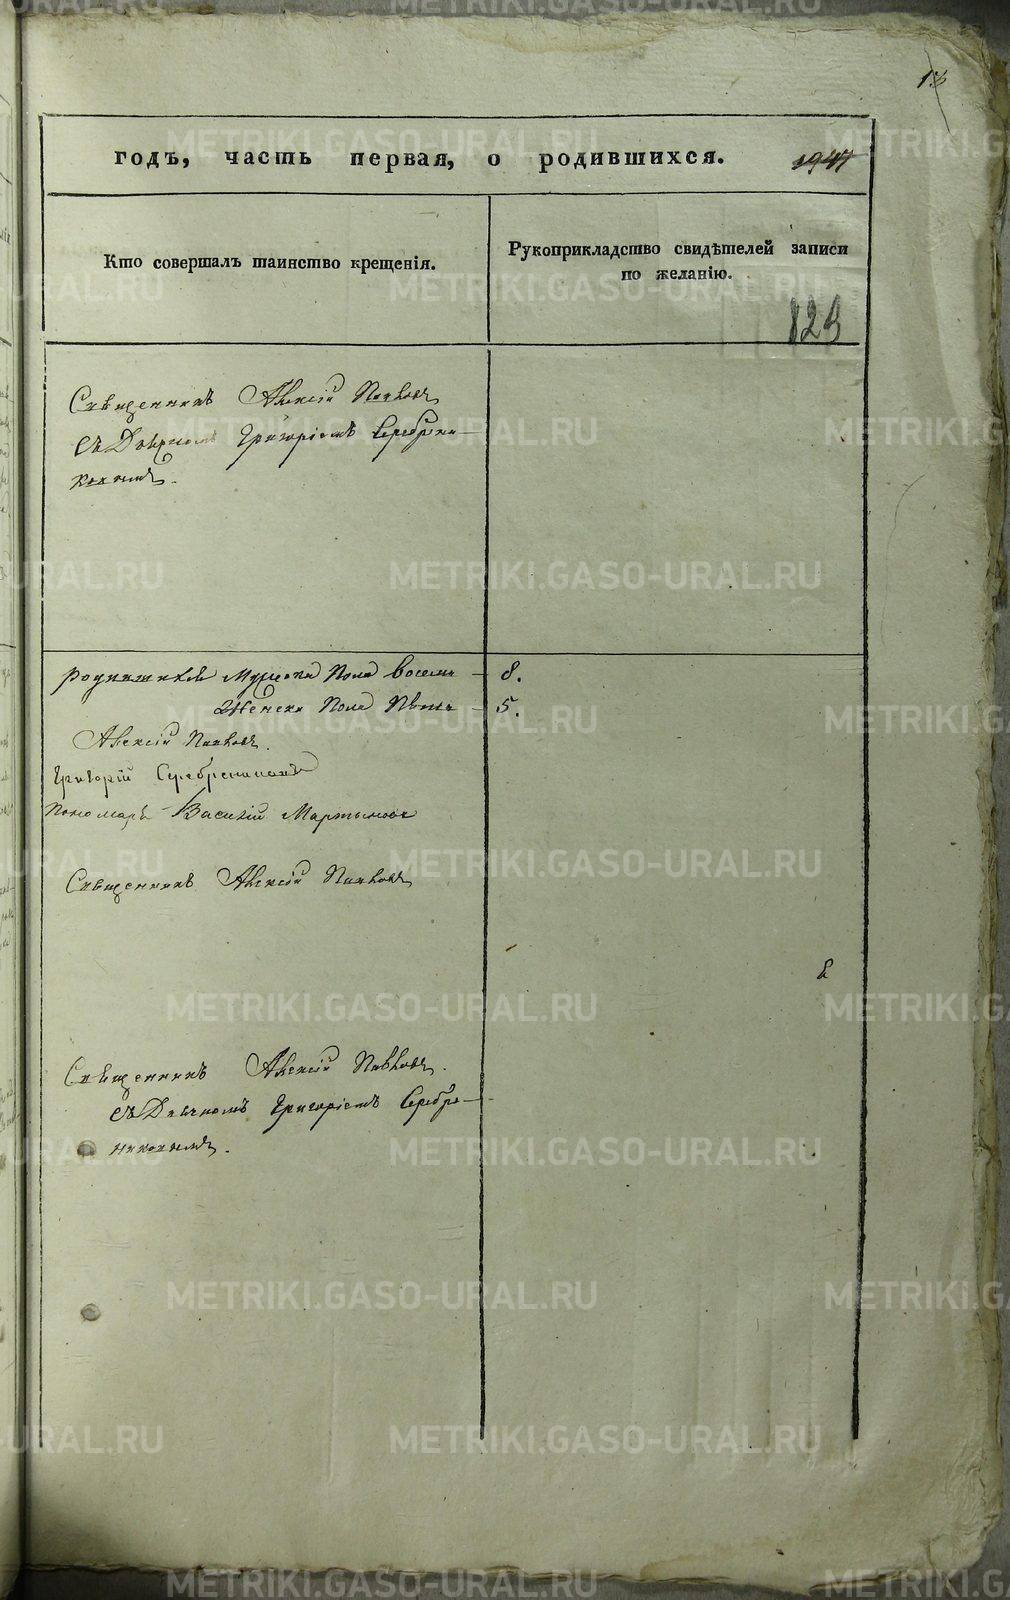 13
годъ, часть первая, о родившихся. 1947
Кто совершалъ таинство крещенія.
Рукоприкладство свидѣтелей записи
по желанію.
823
Священникъ Алексій Павловъ
съ Дьячкомъ Григоріемъ Серебрени-
ковымъ.
родившихся Мужеска Пола восемь - 8.
Женска Пола Пять - 5.
Алексій Павловъ.
Григорій Серебрениковъ
Пономарь Василій Мартыновъ
Священникъ Алексій Павловъ
Священникъ Алексій Павловъ.
съ Дьячкомъ Григоріемъ Серебре-
никовымъ.
METRIKI.GASO-URAL.RU